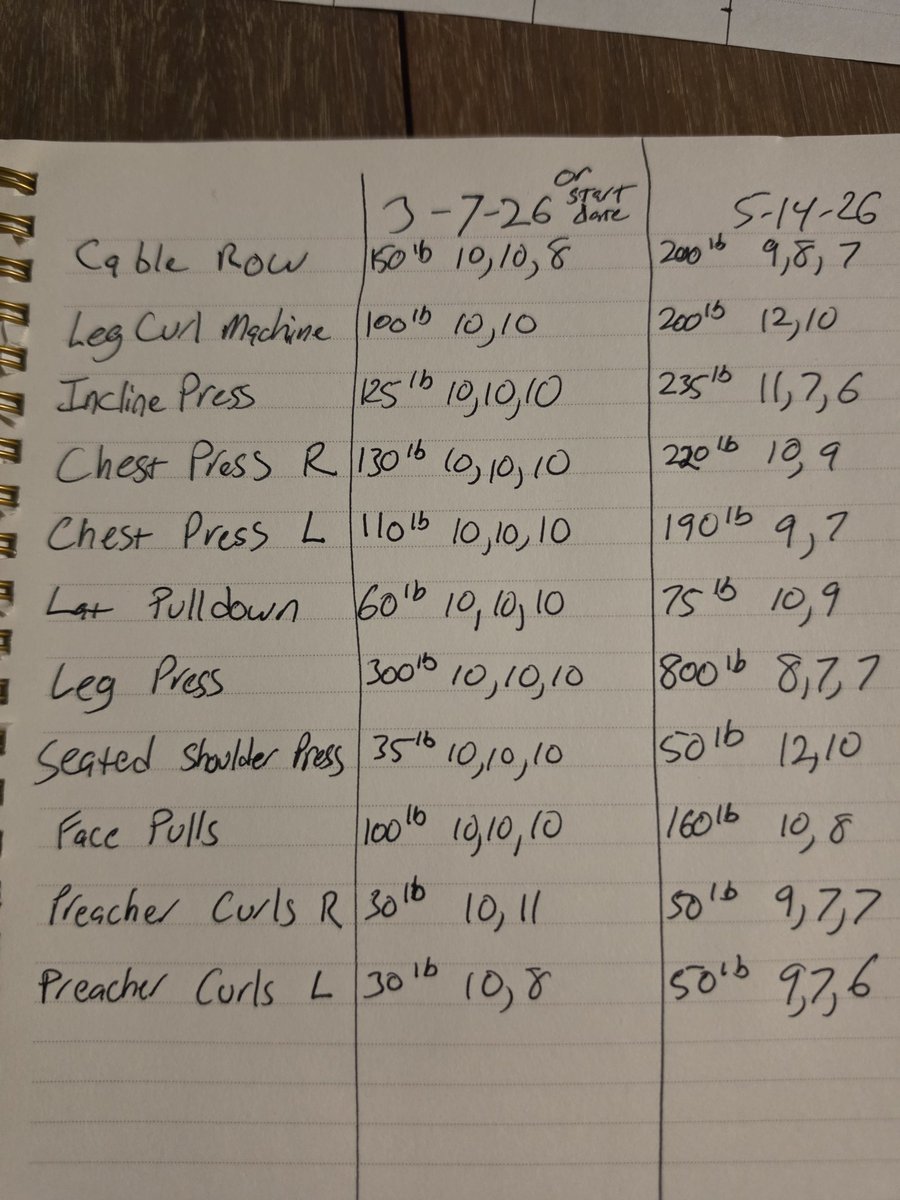 3-7-26 or start date 5-14-26
Cable Row 150lb 10,10,8 200lb 9,8,7
Leg Curl Machine 100lb 10,10 200lb 12,10
Incline Press 125lb 10,10,10 235lb 11,7,6
Chest Press R 130lb 10,10,10 220lb 10,9
Chest Press L 110lb 10,10,10 190lb 9,7
Lat Pulldown 60lb 10,10,10 75lb 10,9
Leg Press 300lb 10,10,10 800lb 8,7,7
Seated Shoulder Press 35lb 10,10,10 50lb 12,10
Face Pulls 100lb 10,10,10 160lb 10,8
Preacher Curls R 30lb 10,11 50lb 9,7,7
Preacher Curls L 30lb 10,8 50lb 9,7,6